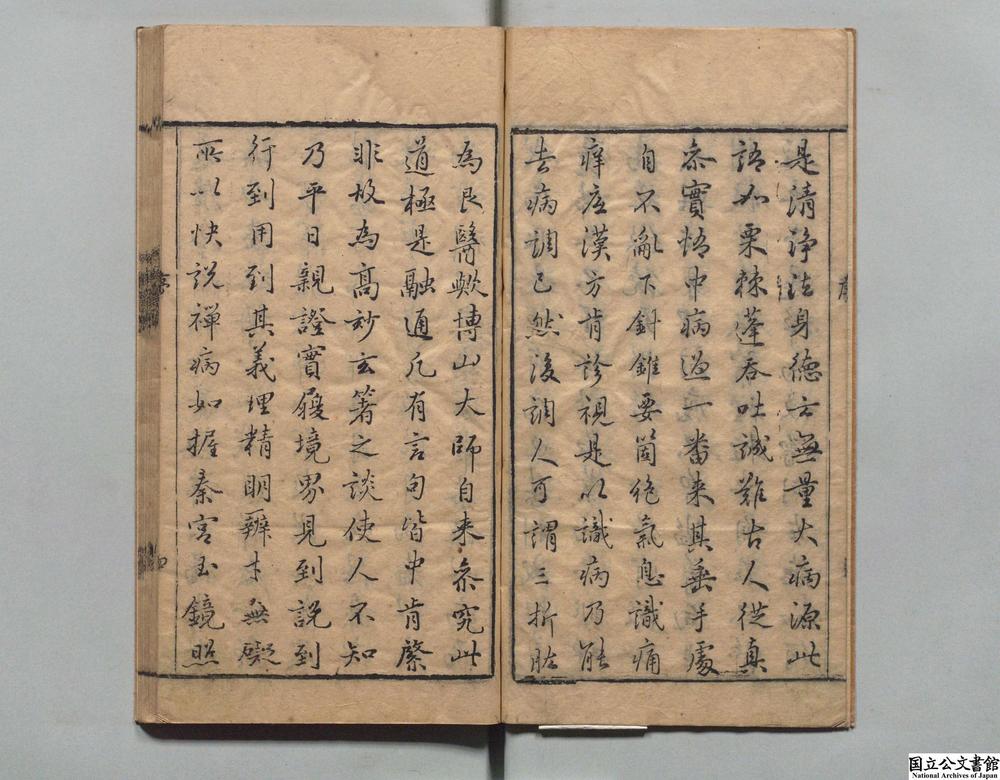 是清淨法身徳云無量大病源此
語如栗棘蓬吞吐誠難古人從真
叅實悟中病過一番来其垂手處
自不亂下針錐要箇絶氣息識痛
痒底漢方肯診視是以識病乃能
去病調己然後調人可謂三折肱
為良醫歟博山大師自来叅究此
道極是融通凡有言句皆中肯綮
非故為高妙玄箸之談使人不知
乃平日親證實履境界見到説到
行到用到其義理精明辨才無礙
所以快説禪病如握秦宮玉鏡照
序
四
国立公文書館
National Archives of Japan